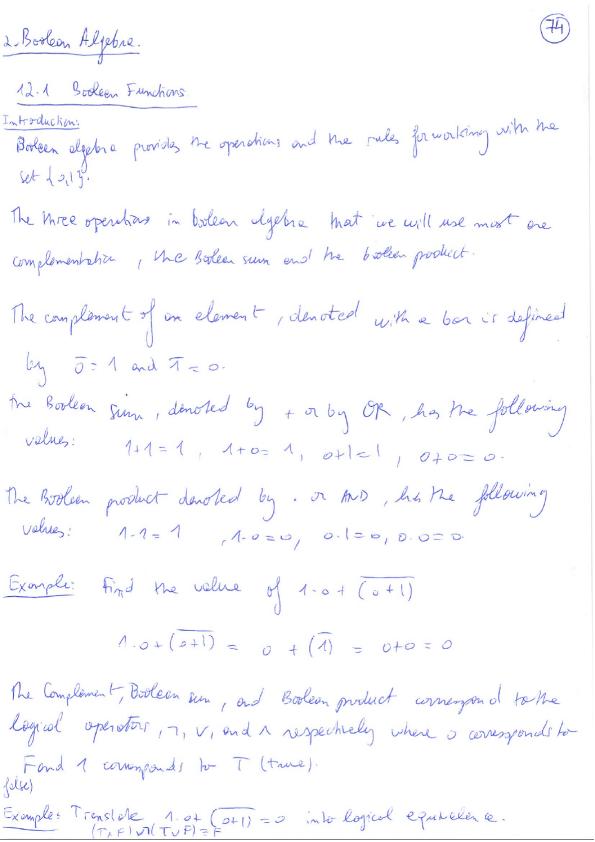 74
2. Boolean Algebra.
12.1 Boolean Functions
Introduction:
Boolean algebra provides the operations and the rules for working with the
set {0,1}.
The three operations in boolean algebra that we will use most are
complementation, the Boolean sum and the boolean product.
The complement of an element, denoted with a bar is defined
by 0̅ = 1 and 1̅ = 0.
the Boolean sum, denoted by + or by OR, has the following
values: 1+1=1, 1+0=1, 0+1=1, 0+0=0.
The Boolean product denoted by . or AND, has the following
values: 1.1=1, 1.0=0, 0.1=0, 0.0=0
Example: Find the value of 1.0 + \overline{(0+1)}
1.0+\overline{(0+1)} = 0 + (1̅) = 0+0 = 0
The Complement, Boolean sum, and Boolean product correspond to the
logical operators, ¬, ∨, and ∧ respectively where 0 corresponds to
F and 1 corresponds to T (true).
false)
Example: Translate 1.0+\overline{(0+1)} = 0 into logical equivalence.
(T∧F)∨¬(T∨F)≡F